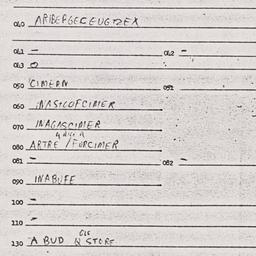 040 ARIBERGECEUGTZEX
041 - 042 -
043 O
050 CIMERN 051
060 INASICOFCIMER
070 INAGASCIMER
080 ARTRE / FORCIMER
081 - 082 -
090 INABUFF
100 -
110 -
130 A BUD & STORE